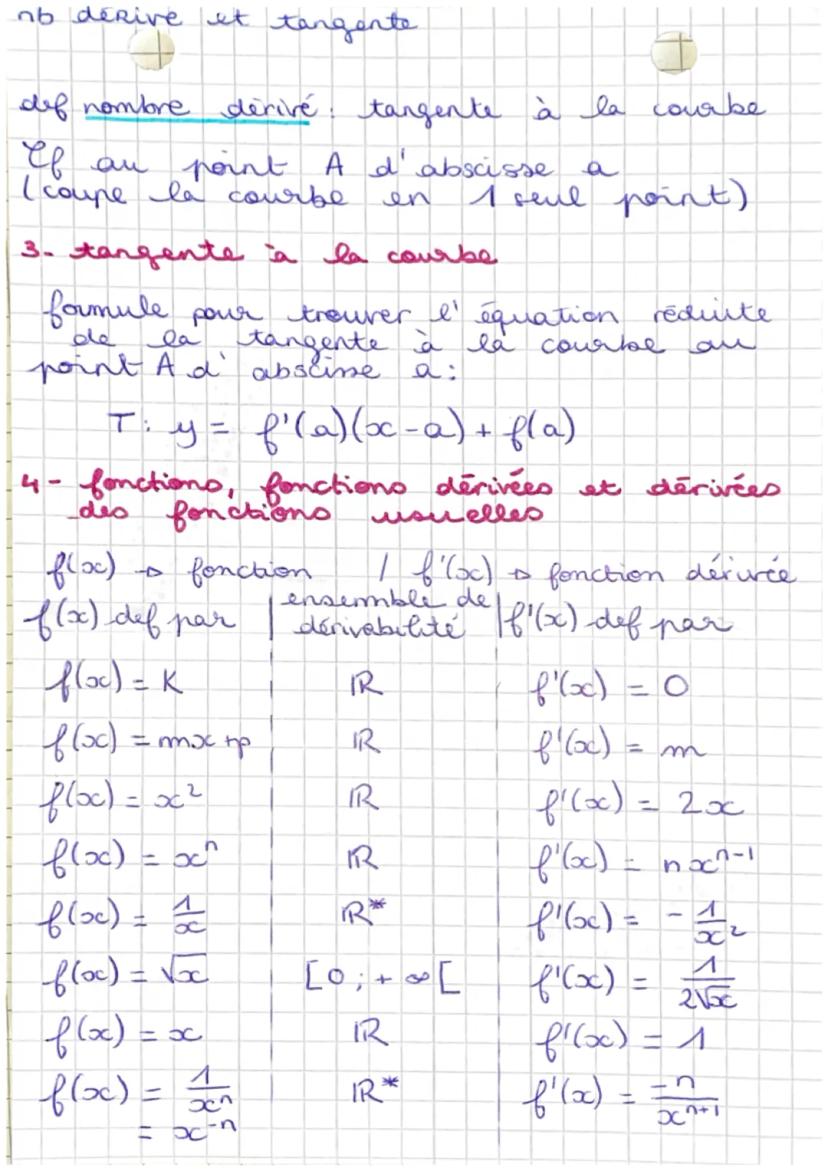 nb dérivé et tangente
def nombre dérivé : tangente à la courbe
Cf au point A d'abscisse a
(coupe la courbe en 1 seul point)
3- tangente à la courbe
formule pour trouver l'équation réduite
de la tangente à la courbe au
point A d'abscisse a :
T: y = f'(a)(x-a) + f(a)
4- fonctions, fonctions dérivées et dérivées
des fonctions usuelles
f(x) → fonction / f'(x) → fonction dérivée
f(x) def par | ensemble de dérivabilité | f'(x) def par
f(x) = K | ℝ | f'(x) = 0
f(x) = mx+p | ℝ | f'(x) = m
f(x) = x² | ℝ | f'(x) = 2x
f(x) = xⁿ | ℝ | f'(x) = nxⁿ⁻¹
f(x) = 1/x | ℝ* | f'(x) = -1/x²
f(x) = √x | [0 ; +∞[ | f'(x) = 1/(2√x)
f(x) = x | ℝ | f'(x) = 1
f(x) = 1/xⁿ | ℝ* | f'(x) = -n/xⁿ⁺¹
= x⁻ⁿ